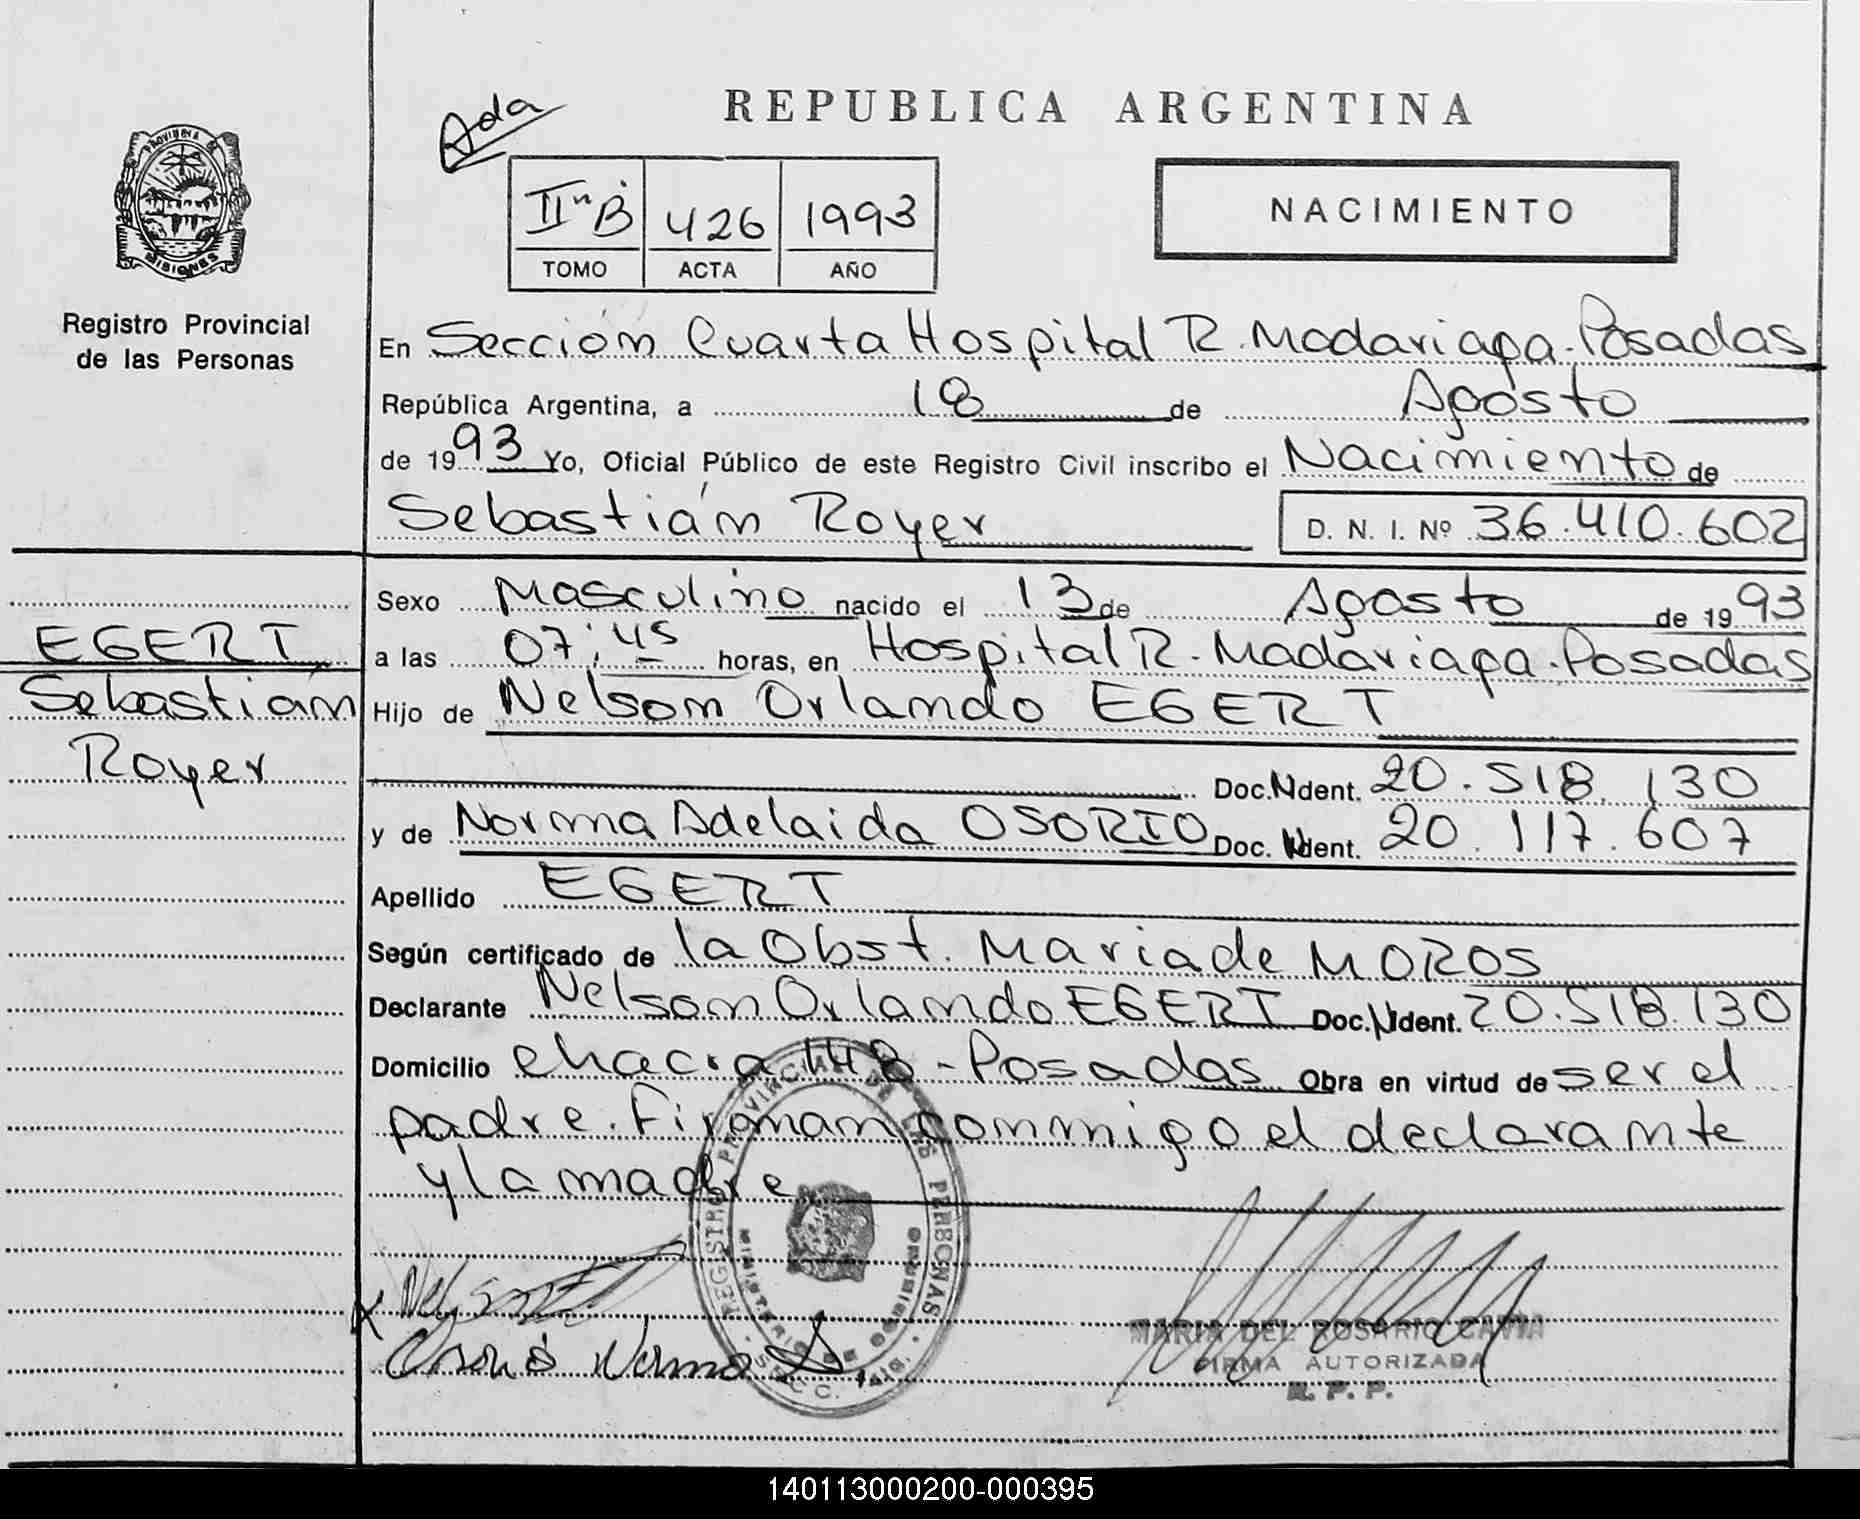 Ada
REPUBLICA ARGENTINA
PROVINCIA DE
MISIONES
IIn B 426 1993
TOMO ACTA AÑO
NACIMIENTO
Registro Provincial
de las Personas
En Sección Cuarta Hospital R. Madariaga-Posadas
República Argentina, a 18 de Agosto
de 1993 Yo, Oficial Público de este Registro Civil inscribo el Nacimiento de
Sebastián Royer D. N. I. Nº 36.410.602
Sexo Masculino nacido el 13 de Agosto de 1993
EGERT,
a las 07:45 horas, en Hospital R. Madariaga-Posadas
Sebastián
Hijo de Nelson Orlando EGERT
Royer
Doc. Ident. 20.518.130
y de Norma Adelaida OSORIO Doc. Ident. 20.117.607
Apellido EGERT
Según certificado de la Obst. Maria de MOROS
Declarante Nelson Orlando EGERT Doc. Ident. 20.518.130
Domicilio chacra 148-Posadas Obra en virtud de ser el
padre. Firman conmigo el declarante
y la madre
REGISTRO PROVINCIAL DE LAS PERSONAS
MINISTERIO DE GOBIERNO
Osorio Norma
MARIA DEL ROSARIO CAVIA
FIRMA AUTORIZADA
R. P. P.
140113000200-000395